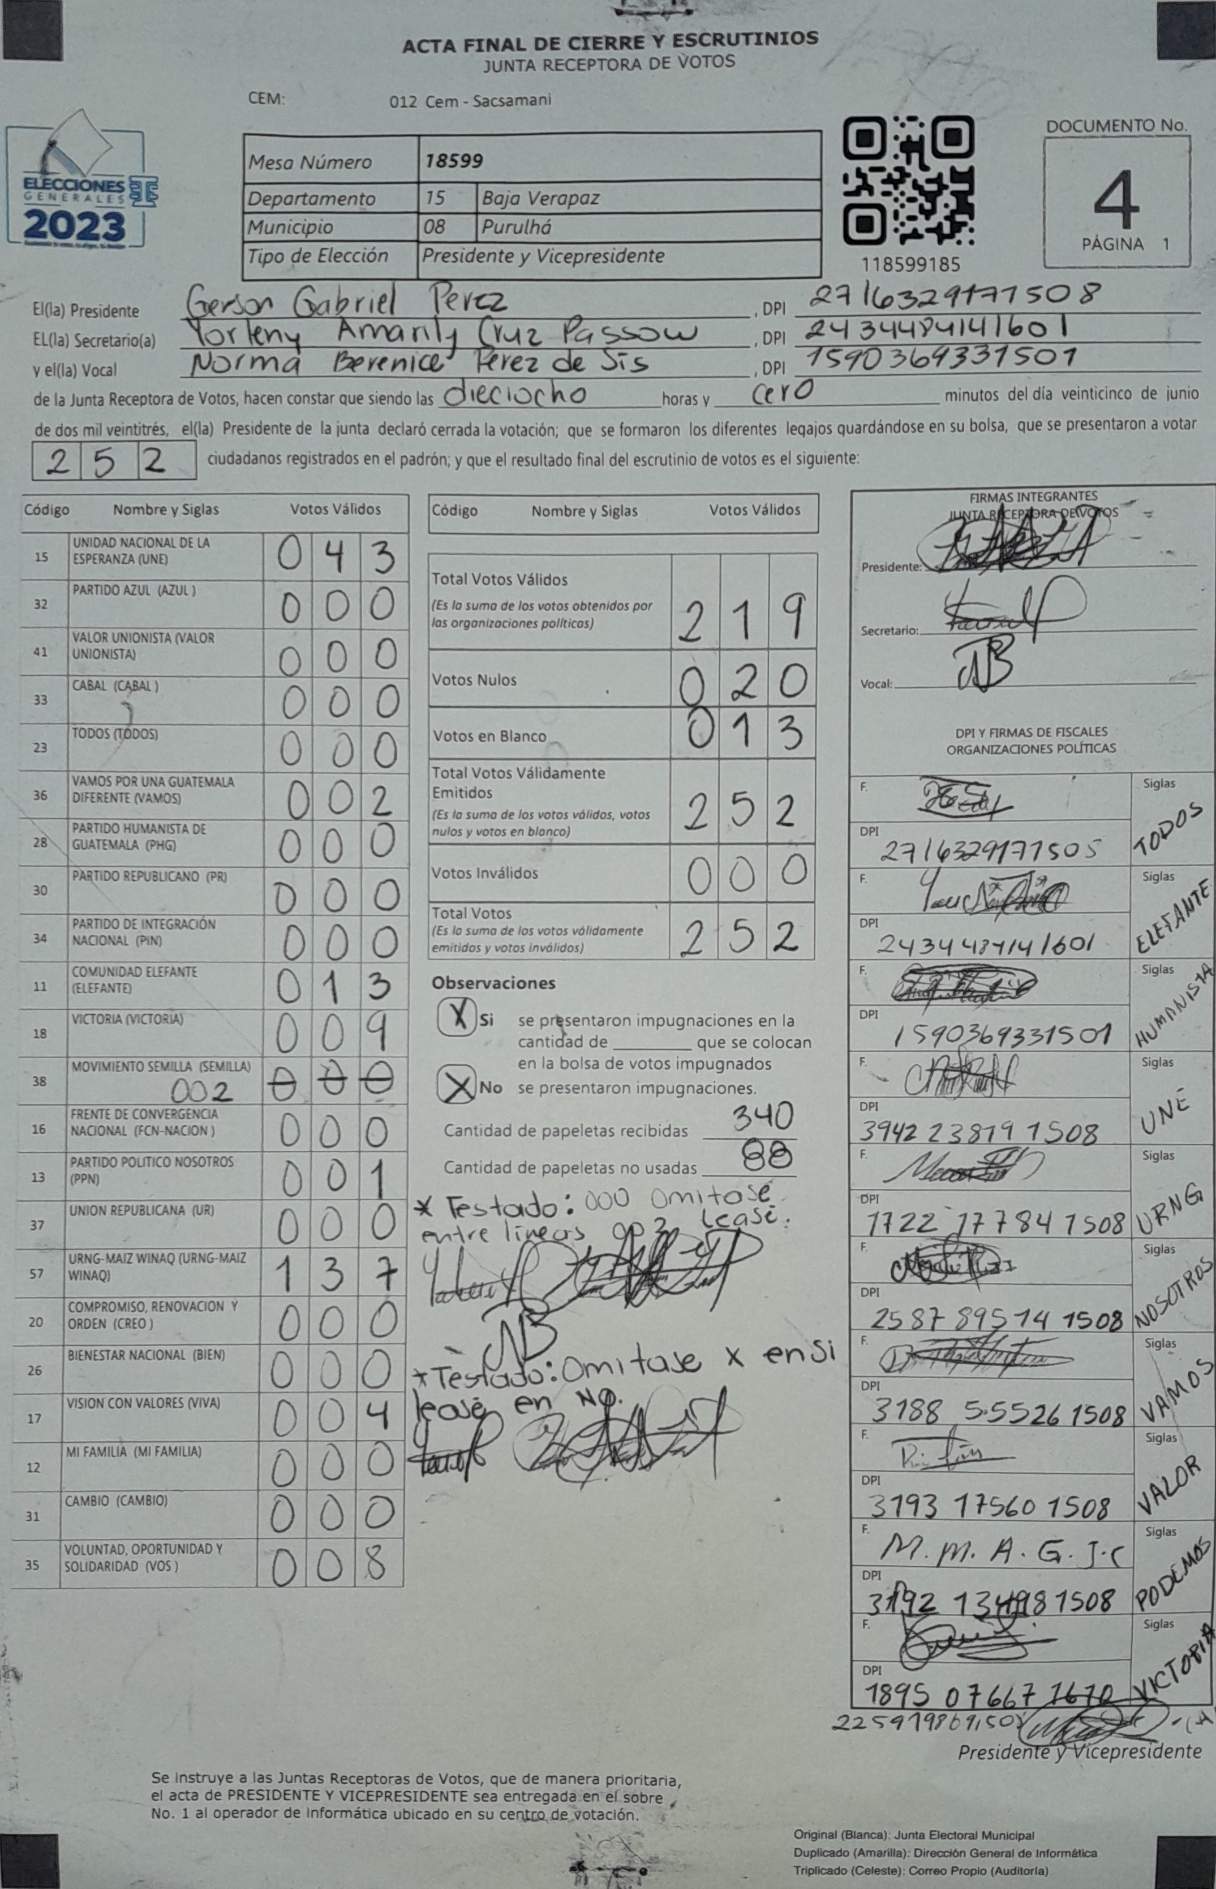 ACTA FINAL DE CIERRE Y ESCRUTINIOS
JUNTA RECEPTORA DE VOTOS
CEM: 012 Cem - Sacsamani
ELECCIONES
GENERALES
2023
Mesa Número 18599
Departamento 15 Baja Verapaz
Municipio 08 Purulhá
Tipo de Elección Presidente y Vicepresidente
118599185
DOCUMENTO No.
4
PÁGINA 1
El(la) Presidente Gerson Gabriel Perez , DPI 2716329171508
EL(la) Secretario(a) Yorleny Amarily Cruz Passow , DPI 2434484141601
y el(la) Vocal Norma Berenice Pérez de Sis , DPI 1590369331501
de la Junta Receptora de Votos, hacen constar que siendo las dieciocho horas y cero minutos del día veinticinco de junio
de dos mil veintitrés, el(la) Presidente de la junta declaró cerrada la votación; que se formaron los diferentes legajos guardándose en su bolsa, que se presentaron a votar
252 ciudadanos registrados en el padrón; y que el resultado final del escrutinio de votos es el siguiente:
Código Nombre y Siglas Votos Válidos
15 UNIDAD NACIONAL DE LA ESPERANZA (UNE) 043
32 PARTIDO AZUL (AZUL ) 000
41 VALOR UNIONISTA (VALOR UNIONISTA) 000
33 CABAL (CABAL ) 000
23 TODOS (TODOS) 000
36 VAMOS POR UNA GUATEMALA DIFERENTE (VAMOS) 002
28 PARTIDO HUMANISTA DE GUATEMALA (PHG) 000
30 PARTIDO REPUBLICANO (PR) 000
34 PARTIDO DE INTEGRACIÓN NACIONAL (PIN) 000
11 COMUNIDAD ELEFANTE (ELEFANTE) 013
18 VICTORIA (VICTORIA) 009
38 MOVIMIENTO SEMILLA (SEMILLA) 002 000
16 FRENTE DE CONVERGENCIA NACIONAL (FCN-NACION ) 000
13 PARTIDO POLITICO NOSOTROS (PPN) 001
37 UNION REPUBLICANA (UR) 000
57 URNG-MAIZ WINAQ (URNG-MAIZ WINAQ) 137
20 COMPROMISO, RENOVACION Y ORDEN (CREO ) 000
26 BIENESTAR NACIONAL (BIEN) 000
17 VISION CON VALORES (VIVA) 004
12 MI FAMILIA (MI FAMILIA) 000
31 CAMBIO (CAMBIO) 000
35 VOLUNTAD, OPORTUNIDAD Y SOLIDARIDAD (VOS ) 008
Código Nombre y Siglas Votos Válidos
Total Votos Válidos
(Es la suma de los votos obtenidos por
las organizaciones políticas) 219
Votos Nulos 020
Votos en Blanco 013
Total Votos Válidamente
Emitidos
(Es la suma de los votos válidos, votos
nulos y votos en blanco) 252
Votos Inválidos 000
Total Votos
(Es la suma de los votos válidamente
emitidos y votos inválidos) 252
Observaciones
X Si se presentaron impugnaciones en la
cantidad de ________ que se colocan
en la bolsa de votos impugnados
X No se presentaron impugnaciones.
Cantidad de papeletas recibidas 340
Cantidad de papeletas no usadas 88
* Testado: 000 Omitase
entre lineas 002 lease.
* Testado: Omitase x en Si
lease en NO.
FIRMAS INTEGRANTES
JUNTA RECEPTORA DE VOTOS
Presidente:
Secretario:
Vocal:
DPI Y FIRMAS DE FISCALES
ORGANIZACIONES POLÍTICAS
F. Siglas
DPI 2716329171505 TODOS
F. Siglas
DPI 2434484141601 ELEFANTE
F. Siglas
DPI 1590369331501 HUMANISTA
F. Siglas
DPI 3942 23819 1508 UNE
F. Siglas
DPI 1722 17784 1508 URNG
F. Siglas
DPI 2587 89514 1508 NOSOTROS
F. Siglas
DPI 3188 55526 1508 VAMOS
F. Siglas
DPI 3193 17560 1508 VALOR
F. M.M.A.G.J.C Siglas
DPI 3192 13498 1508 PODEMOS
F. Siglas
DPI 1895 07667 1610 VICTORIA
Presidente y Vicepresidente
Se instruye a las Juntas Receptoras de Votos, que de manera prioritaria,
el acta de PRESIDENTE Y VICEPRESIDENTE sea entregada en el sobre
No. 1 al operador de informática ubicado en su centro de votación.
Original (Blanca): Junta Electoral Municipal
Duplicado (Amarilla): Dirección General de Informática
Triplicado (Celeste): Correo Propio (Auditoría)